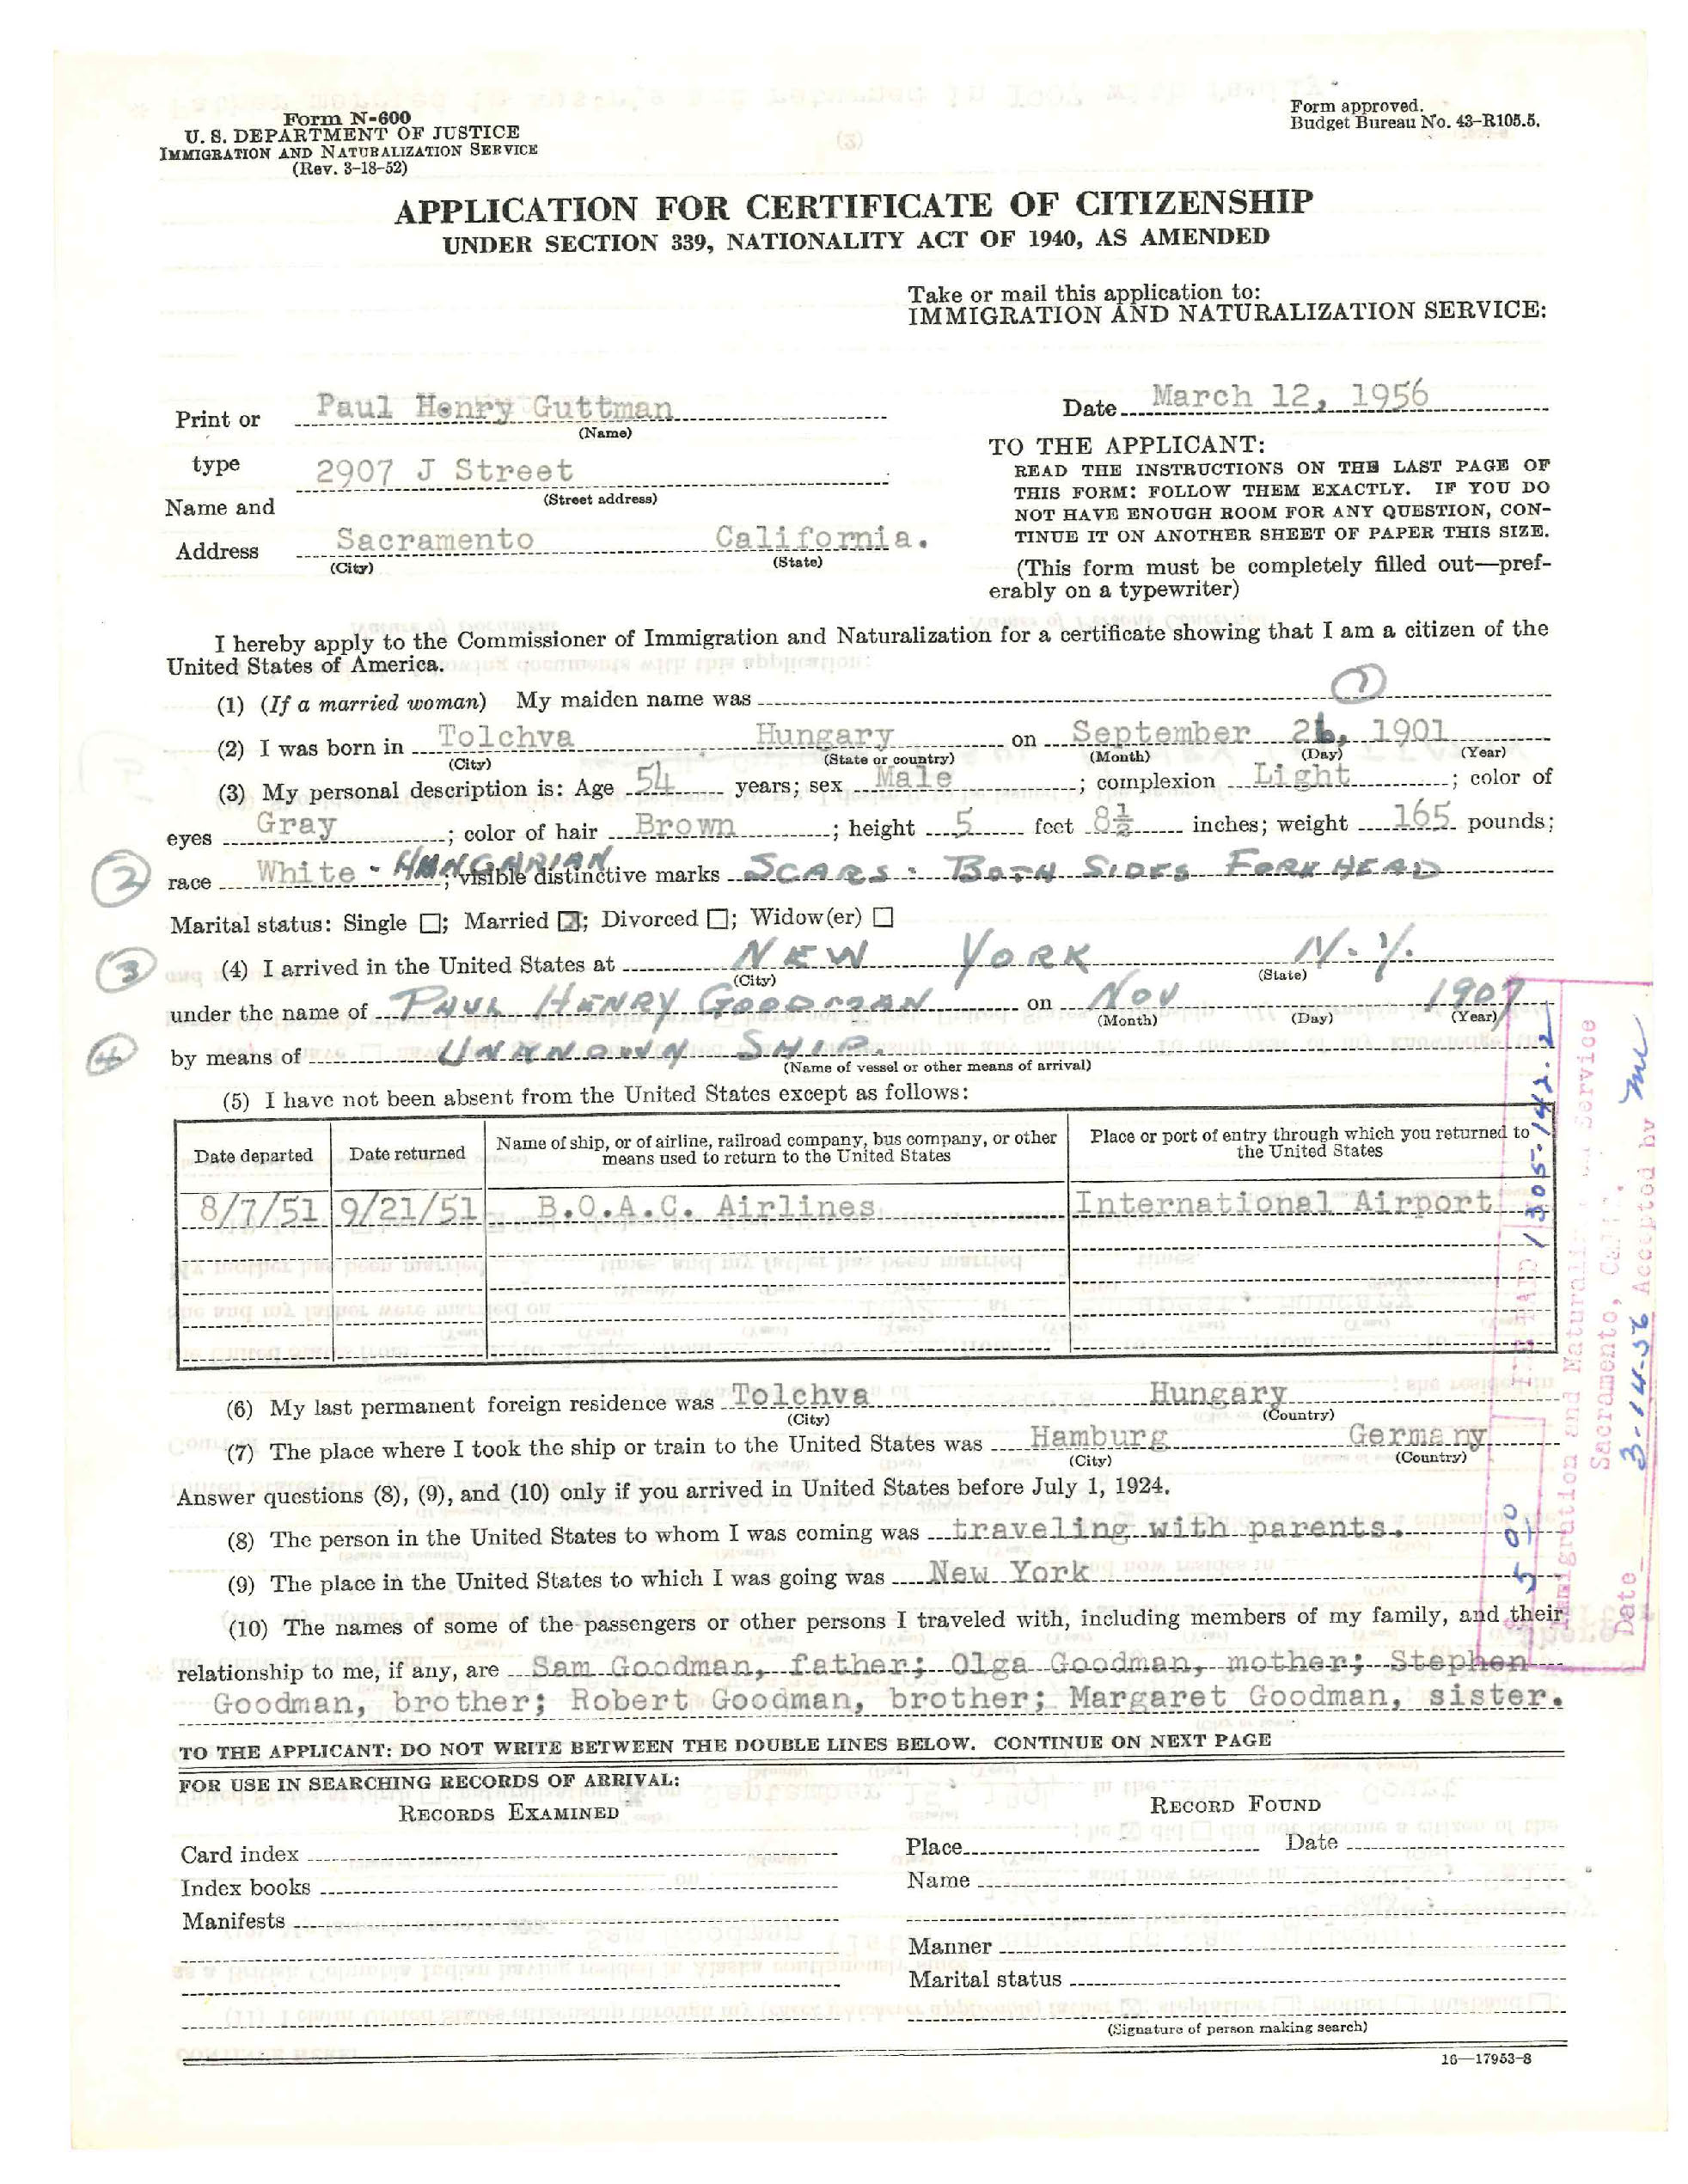 Form N-600
U. S. DEPARTMENT OF JUSTICE
IMMIGRATION AND NATURALIZATION SERVICE
(Rev. 3-18-52)
Form approved.
Budget Bureau No. 43-R105.5.
APPLICATION FOR CERTIFICATE OF CITIZENSHIP
UNDER SECTION 339, NATIONALITY ACT OF 1940, AS AMENDED
Take or mail this application to:
IMMIGRATION AND NATURALIZATION SERVICE:
Print or Paul Henry Guttman
(Name)
type 2907 J Street
Name and (Street address)
Address Sacramento California.
(City) (State)
Date March 12, 1956
TO THE APPLICANT:
READ THE INSTRUCTIONS ON THE LAST PAGE OF
THIS FORM: FOLLOW THEM EXACTLY. IF YOU DO
NOT HAVE ENOUGH ROOM FOR ANY QUESTION, CON-
TINUE IT ON ANOTHER SHEET OF PAPER THIS SIZE.
(This form must be completely filled out—pref-
erably on a typewriter)
I hereby apply to the Commissioner of Immigration and Naturalization for a certificate showing that I am a citizen of the
United States of America.
(1) (If a married woman) My maiden name was 1
(2) I was born in Tolchva Hungary on September 26, 1901
(City) (State or country) (Month) (Day) (Year)
(3) My personal description is: Age 54 years; sex Male; complexion Light; color of
eyes Gray; color of hair Brown; height 5 feet 8½ inches; weight 165 pounds;
2 race White - HUNGARIAN; visible distinctive marks SCARS - BOTH SIDES FOREHEAD
Marital status: Single ☐; Married ☒; Divorced ☐; Widow(er) ☐
3 (4) I arrived in the United States at NEW YORK N.Y.
(City) (State)
under the name of PAUL HENRY GOODMAN on NOV 1907
(Month) (Day) (Year)
4 by means of UNKNOWN SHIP.
(Name of vessel or other means of arrival)
(5) I have not been absent from the United States except as follows:
Date departed Date returned Name of ship, or of airline, railroad company, bus company, or other means used to return to the United States Place or port of entry through which you returned to the United States
8/7/51 9/21/51 B.O.A.C. Airlines International Airport
(6) My last permanent foreign residence was Tolchva Hungary
(City) (Country)
(7) The place where I took the ship or train to the United States was Hamburg Germany
(City) (Country)
Answer questions (8), (9), and (10) only if you arrived in United States before July 1, 1924.
(8) The person in the United States to whom I was coming was traveling with parents.
(9) The place in the United States to which I was going was New York
(10) The names of some of the passengers or other persons I traveled with, including members of my family, and their
relationship to me, if any, are Sam Goodman, father; Olga Goodman, mother; Stephen
Goodman, brother; Robert Goodman, brother; Margaret Goodman, sister.
TO THE APPLICANT: DO NOT WRITE BETWEEN THE DOUBLE LINES BELOW. CONTINUE ON NEXT PAGE
FOR USE IN SEARCHING RECORDS OF ARRIVAL:
RECORDS EXAMINED
Card index
Index books
Manifests
RECORD FOUND
Place Date
Name
Manner
Marital status
(Signature of person making search)
16—17953-8
5 00 PAID 1305-142.2
Immigration and Naturalization Service
Sacramento, Calif.
Date 3-14-56 Accepted by mc